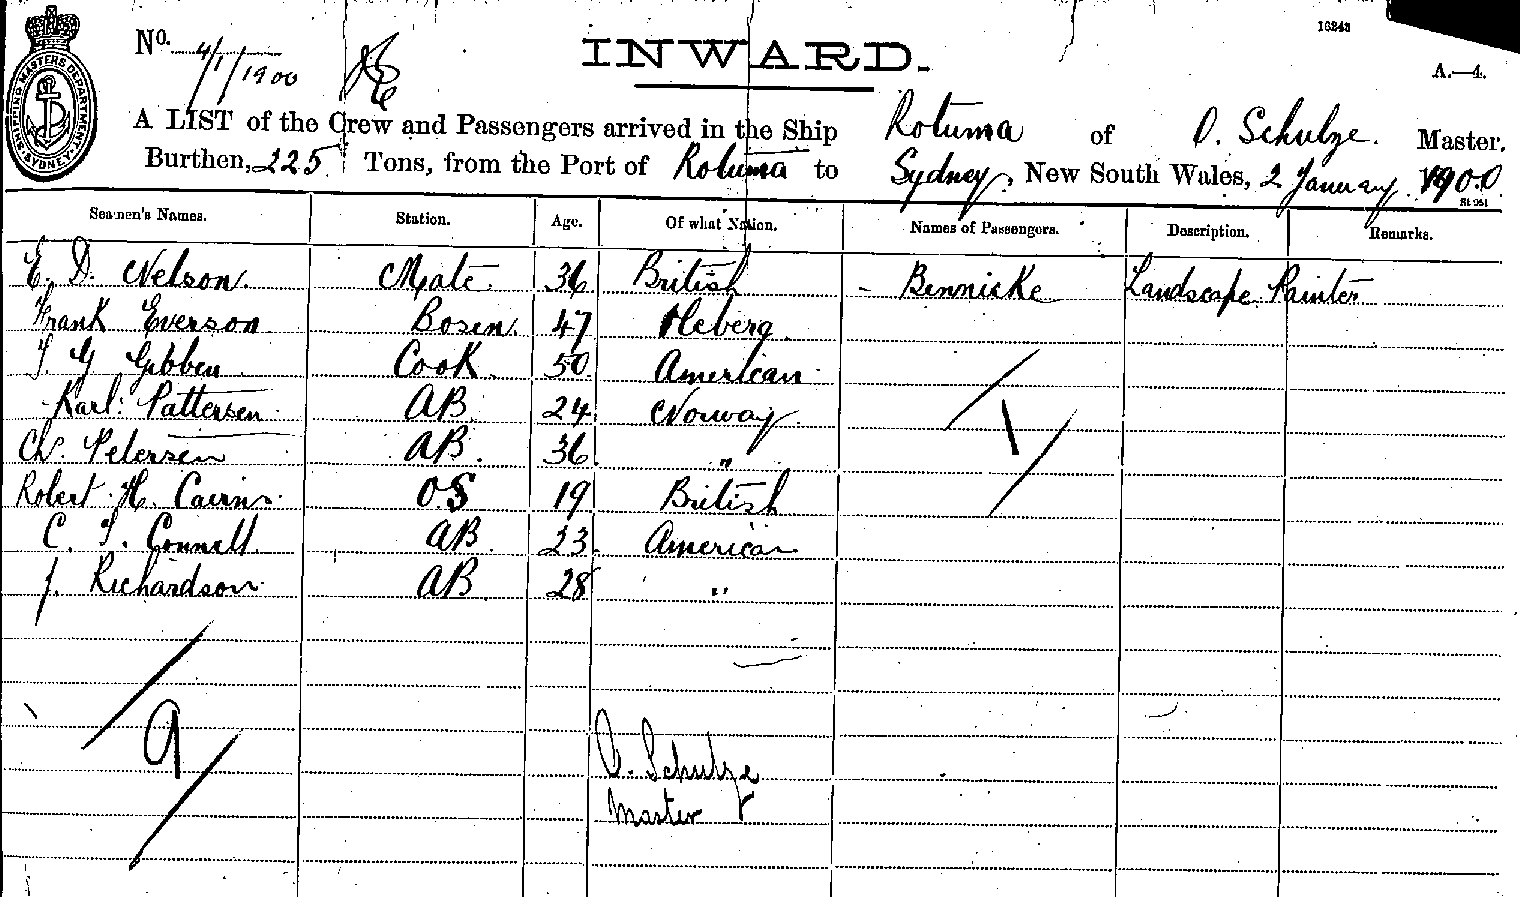 16243
No. 4/1/1900
INWARD.
A.—4.
SHIPPING MASTERS DEPARTMENT. SYDNEY.
A LIST of the Crew and Passengers arrived in the Ship Rotuma of O. Schulze. Master,
Burthen, 225 Tons, from the Port of Rotuma to Sydney, New South Wales, 2 January 1900.
Seamen's Names. Station. Age. Of what Nation. Names of Passengers. Description. Remarks.
E. D. Nelson. Mate. 36 British - Bennicke Landscape Painter
Frank Everson Bosen. 47
T. G Gibben Cook. 50 American
Karl. Pattersen AB. 24 Norway
Ch. Petersen AB. 36 "
Robert. H. Cairns. OS 19 British 1
C. T. Connell. AB. 23. American
J. Richardson AB. 28 "
9
O. Schulze
Master